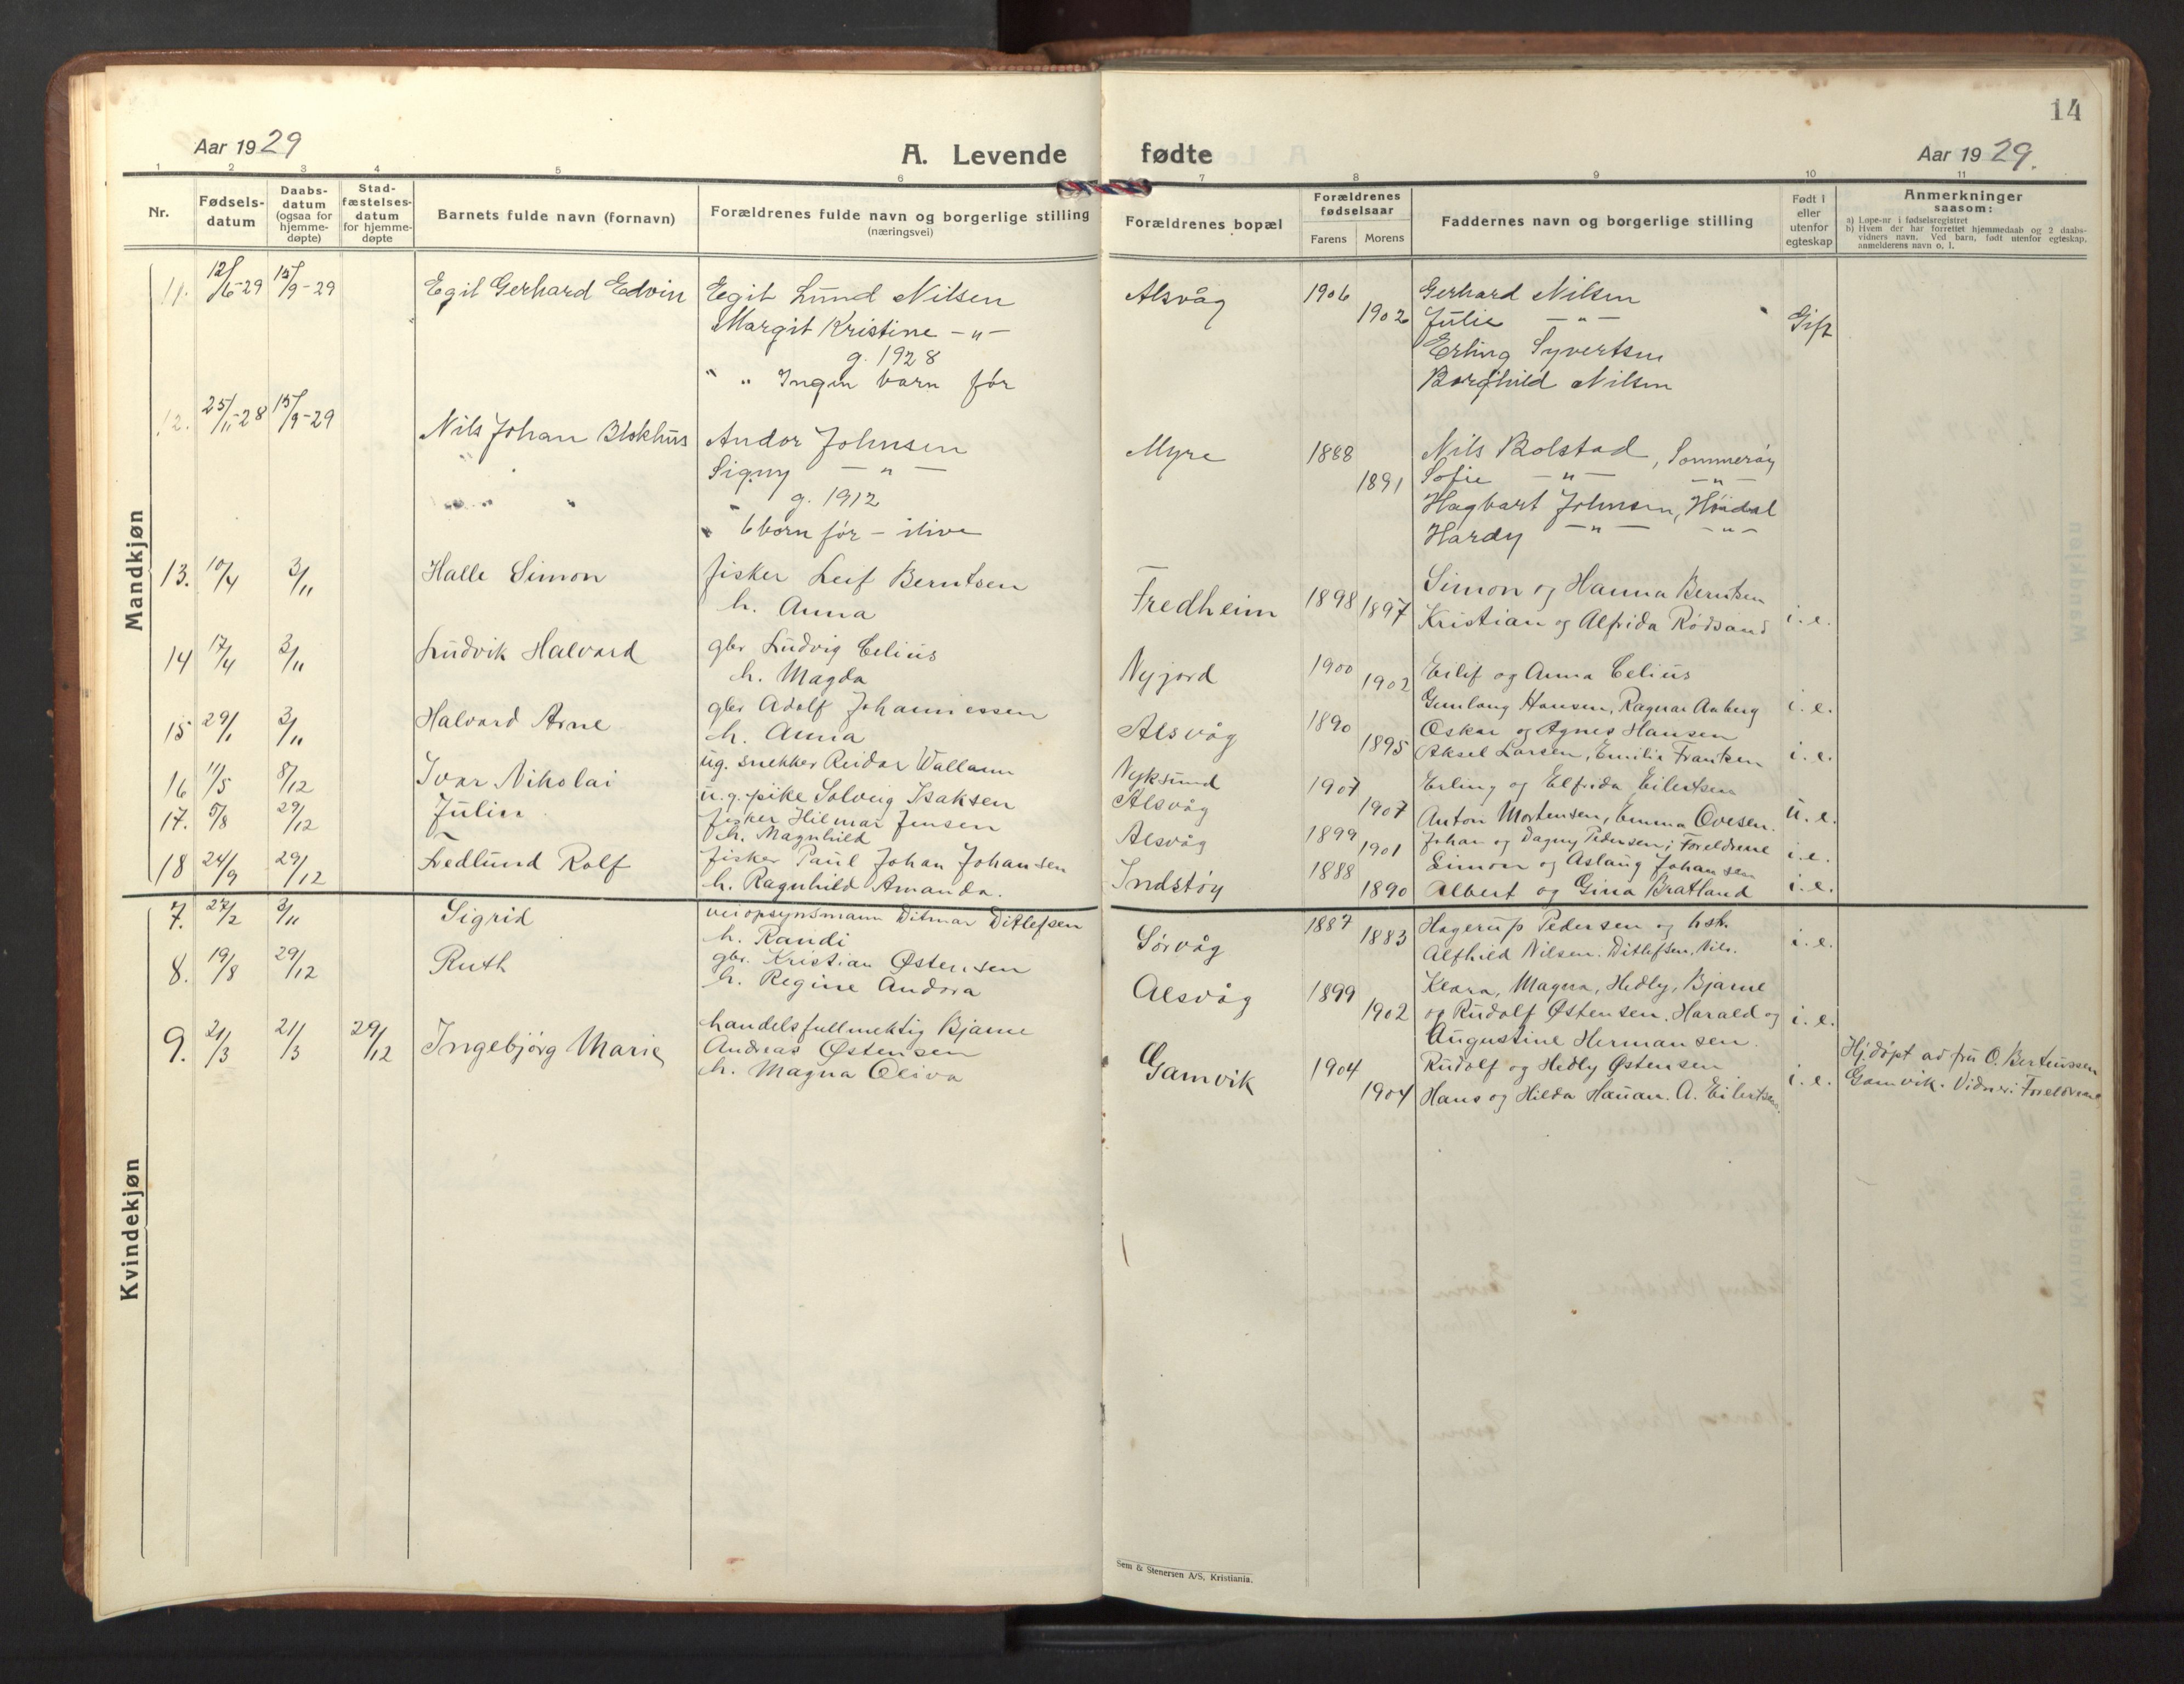 14
Aar 1929
A. Levende fødte
Aar 1929.
1 2 3 4 5 6 7 8 9 10 11
Nr.
Fødselsdatum
Daabsdatum (ogsaa for hjemmedøpte)
Stadfæstelsesdatum for hjemmedøpte
Barnets fulde navn (fornavn)
Forældrenes fulde navn og borgerlige stilling
(næringsvei)
Forældrenes bopæl
Forældrenes fødselsaar
Farens Morens
Faddernes navn og borgerlige stilling
Født i eller utenfor egteskap
Anmerkninger
saasom:
a) Løpe-nr i fødselsregistret
b) Hvem der har forrettet hjemmedaab og 2 daabsvidners navn. Ved barn, født utenfor egteskap, anmelderens navn o. l.
Mandkjøn
11. 12/6-29 15/9-29 Egil Gerhard Edvin Egil Lund Nilsen Alsvåg 1906 Gerhard Nilsen
Margit Kristine -"- 1902 Julie -"- Gift
g. 1928 Erling Syvertsen
" " Ingen barn før Borghild Nilsen
12. 25/11-28 15/9-29 Nils Johan Blokhus Andor Johnsen Myre 1888 Nils Bolstad, Sommerøy
Signy -"- 1891 Sofie -"- -"-
g. 1912 Hagbart Johnsen, Høidal
" 6 born før - ilive Hardy -"- -"-
13. 10/4 3/11 Halle Simon fisker Leif Berntsen Fredheim 1898 Simon og Hanna Berntsen
h. Anna 1897 Kristian og Alfrida Rødsand i.e.
14 17/4 3/11 Ludvik Halvard gbr Ludvig Celius Nyjord 1900 Eilif og Anna Celius
h. Magda 1902 Gunlaug Hansen, Ragnar Aaberg i.e.
15 29/1 3/11 Halvard Arne gbr Adolf Johannessen Alsvåg 1890 Oskar og Agnes Hansen
h. Anna 1895 Aksel Larsen, Emilie Frantzen i.e.
16 11/5 8/12 Ivar Nikolai ug. snekker Reidar Wallann Nyksund 1907 Erling og Elfrida Eilertsen
u.g. pike Solveig Isaksen Alsvåg 1907 Anton Mortensen, Emma Ovesen. u.e.
17. 5/8 29/12 Julin fisker Hilmar Jensen Alsvåg 1899 Johan og Dagny Pedersen; Foreldrene
h. Magnhild 1901 i.e.
18 24/9 29/12 Fredlund Rolf fisker Paul Johan Johansen Indstøy 1888 Simon og Aslaug Johansen
h. Ragnhild Amanda. 1890 Albert og Gina Bratland i.e.
Kvindekjøn
7. 27/2 3/11 Sigrid veiopsynsmann Ditmar Ditlefsen Sørvåg 1887 Hagerup Pedersen og hstr.
h. Randi 1883 Alfhild Nilsen. Ditlefsen, Nils. i.e.
8. 19/8 29/12 Ruth gbr. Kristian Østensen Alsvåg 1899 Klara, Magna, Hedly, Bjarne
h. Regine Andora 1902 og Rudolf Østensen. Harald og i.e.
Augustine Hermansen.
9. 21/3 21/3 29/12 Ingebjørg Marie handelsfullmektig Bjarne
Andreas Østensen Gamvik 1904 Rudolf og Hedly Østensen Hj.døpt av fru O. Bertenssen
h. Magna Oliva 1904 Hans og Hilda Hauan. A. Eilertsen. i.e. Gamvik. Vidner: Foreldrene
Sem & Stenersen A/S, Kristiania.